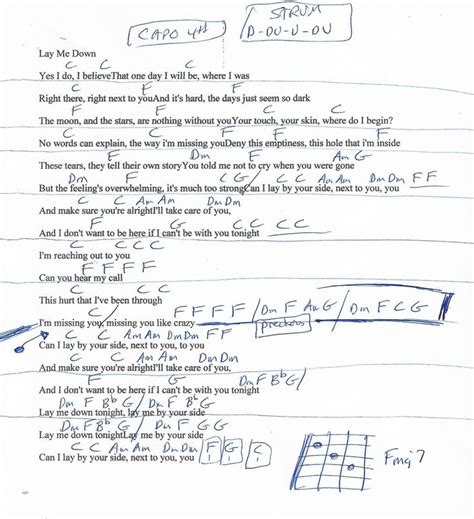 CAPO 4th
STRUM
D-DU-U-DU
Lay Me Down
C C C
Yes I do, I believeThat one day I will be, where I was
C F C
Right there, right next to youAnd it's hard, the days just seem so dark
F C
The moon, and the stars, are nothing without youYour touch, your skin, where do I begin?
C C F C
No words can explain, the way i'm missing youDeny this emptiness, this hole that i'm inside
F Dm F Am G
These tears, they tell their own storyYou told me not to cry when you were gone
Dm F C G / C C Am Am Dm Dm F F
But the feeling's overwhelming, it's much too strongCan I lay by your side, next to you, you
C C Am Am Dm Dm
And make sure you're alrightI'll take care of you,
F G C C C C
And I don't want to be here if I can't be with you tonight
C C C C
I'm reaching out to you
F F F F
Can you hear my call
C C C
This hurt that I've been through
F F F F / Dm F Am G / Dm F C G
I'm missing you, missing you like crazy
C C Am Am Dm Dm F F
Can I lay by your side, next to you, to you
C C Am Am Dm Dm
And make sure you're alrightI'll take care of you,
F G Dm F Bb G /
And I don't want to be here if I can't be with you tonight
Dm F Bb G / Dm F Bb G
Lay me down tonight, lay me by your side
Dm F Bb G / Dm F G G
Lay me down tonightLay me by your side
C C Am Am Dm Dm F G C
Can I lay by your side, next to you, you
Fmaj7